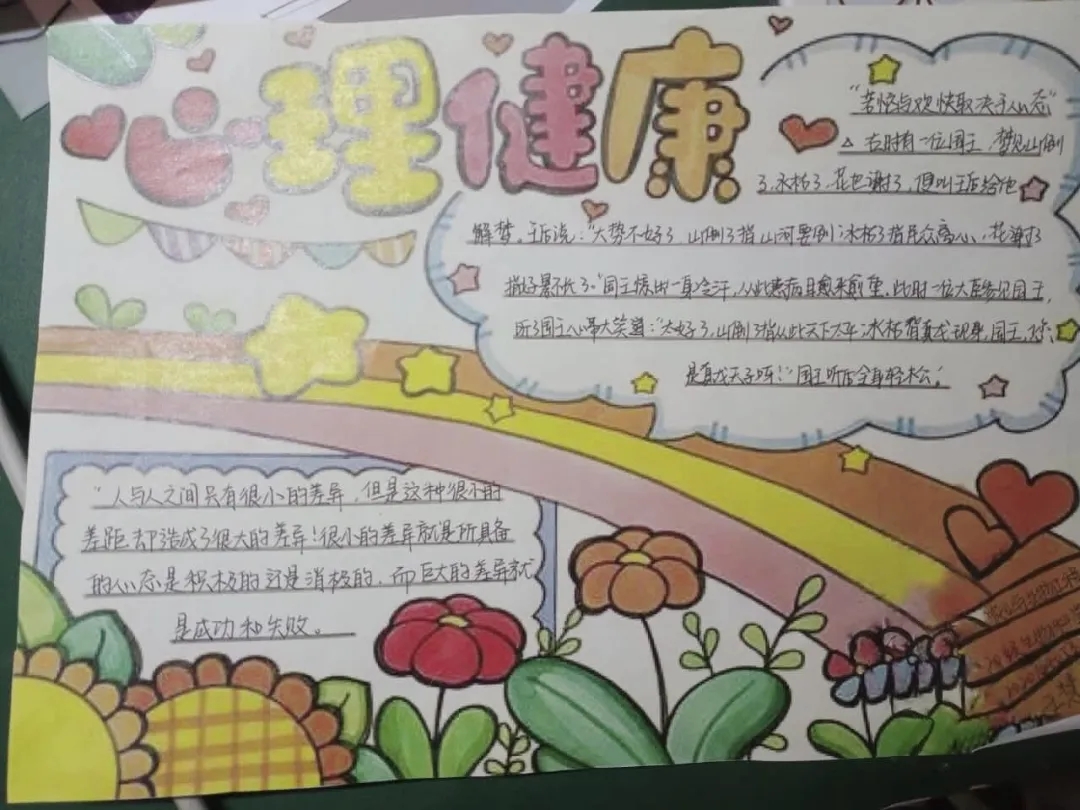 心理健康
"苦恼与欢快取决于心态"
古时有一位国王,梦见山倒
了,水枯了,花也谢了,便叫王后给他
解梦。王后说:"大势不好了,山倒了指山河要倒;水枯了指民众离心,花谢了
指好景不长了。"国王惊出一身冷汗,从此患病且愈来愈重,此时一位大臣参见国王,
听了国王心事大笑道:"太好了,山倒了指从此天下太平;水枯指真龙现身,国王,您
是真龙天子呀!"国王听后全身轻松。
"人与人之间只有很小的差异,但是这种很小的
差距却造成了很大的差异!很小的差异就是所具备
的心态是积极的还是消极的,而巨大的差异就
是成功和失败。